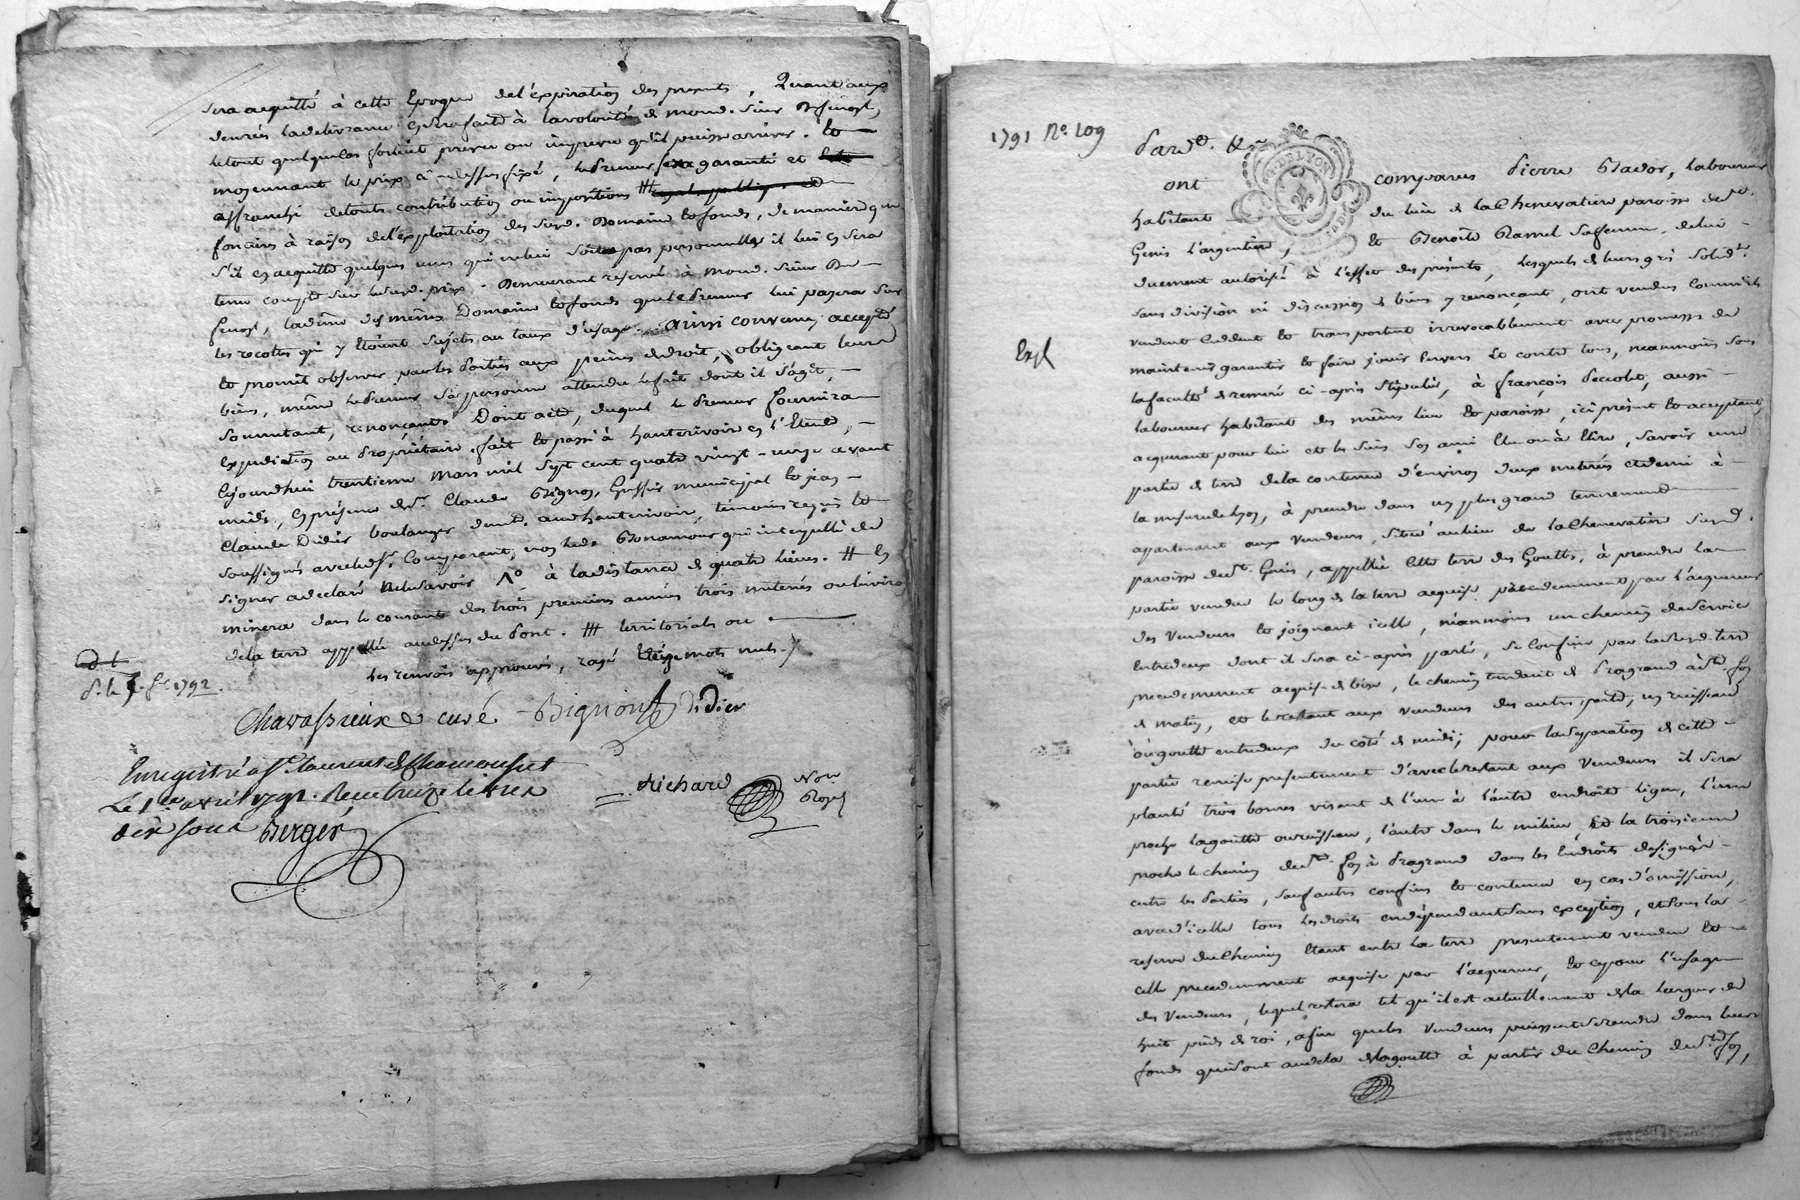 sera acquitté à cette Epoque de l'expiration des presentes, Quant aux
denrées la delivrance en sera faite à la volonté de mond. sieur
le tout quelques cas fortuit prevu ou imprevu qu'il puisse arriver. Et
moyennant le prix ci-dessus fixé, le Preneur sera garanti et
affranchi de toute contribution ou impositions #
foncière à raison de l'exploitation des susd. Domaine et fonds, de maniere que
s'il en acquitte quelques unes qui ne lui soit pas personnelles il lui en sera
tenu compte sur le susd. prix. Demeurant réservé à mond. sieur De
la dîme des mêmes Domaine et fonds que le Preneur lui payera sur
les recoltes qui y étoient sujets au taux d'usage. ainsi convenu, accepté
et promit observer par les Parties aux peines de droit, obligeant leurs
biens, même le Preneur sa personne attendu le fait dont il s'agit,
soumettant, renonçant. Dont acte, duquel le Preneur fournira
expedition au Propriétaire. fait et passé à hauterivoire en l'Etude,
cejourd'hui trentieme Mars mil sept cent quatre vingt-onze avant
midi, en présence de sr. Claude Bignon, Greffier municipal et jean
Claude Didier boulanger demt. aud. hauterivoire, temoins requis et
soussignés avec led. sr. Comparant, non led. Bonamour qui interpellé de
signer a declaré ne le savoir à la distance de quatre lieues. # En
minera dans le courant des trois premieres années trois meterées ou environ
de la terre appellée au dessus du Pont. # territoriales ou
les renvois approuvés, rayé treize mots nuls.
1792
Chavassieux curé Bignon Didier
Enregistré à St. Laurent de Chamousset
Le 1er avril 1791. Recu treize livres
dix sous Berger
Richard Nore
Royal
1791 No. 109
Pard. &
G. DE LYON
ont comparu Pierre Bador, laboureur
habitant du lieu de la Chenevatiere paroisse de St.
Genis l'argentiere, et Benoite Rassel sa femme, de lui
duement autorisée à l'effet des présentes, lesquels de leurs gré solidt.
sans division ni discussion de biens y renonçant, ont vendus comme ils
vendent cedent et transportent irrevocablement avec promesse de
maintenir garantir et faire jouir envers et contre tous, neanmoins sous
la faculté de remeré ci-après stipulée, à françois Peccolet, aussi
Expé
laboureur habitant des mêmes lieu et paroisse, ici présent et acceptant,
acquerant pour lui et les siens son ami élu ou à élire, savoir une
partie de terre de la contenue d'environ deux meterées et demi à
la mesure de Lyon, à prendre dans un plus grand tennement
appartenant aux Vendeurs, situé au lieu de la Chenevatiere susd.
paroisse de St. Genis, appellée cette terre des Gouttes, à prendre la
partie vendue le long de la terre acquise précédemment par l'acquereur
des Vendeurs et joignant icelle, néanmoins un chemin de service
entredeux dont il sera ci-après parlé, se confine par la susd. terre
precedemment acquise de bise, le chemin tendant de Pragrand à Ste. foy
de matin, et le restant aux Vendeurs des autres parts, un ruisseau
ou goutte entredeux du coté de midi; pour la separation de cette
partie remise presentement d'avec le restant aux Vendeurs il sera
planté trois bornes visant de l'une à l'autre en droite ligne, l'une
proche la goutte ou ruisseau, l'autre dans le milieu, et la troisieme
proche le chemin de Ste. foy à Pragrand dans les Endroits designés
entre les Parties, sauf autres confins et contenue en cas d'omission,
avec d'icelle tous les droits en dépendant sans exception, et sous la
reserve du Chemin étant entre la terre presentement vendue et
celle precedemment acquise par l'acquereur, et ce pour l'usage
des Vendeurs, lequel restera tel qu'il est actuellement de la largeur de
huit pieds de roi, afin que les Vendeurs puissent se rendre dans leurs
fonds qui sont au dela de la goutte à partir du Chemin de Ste. foy,